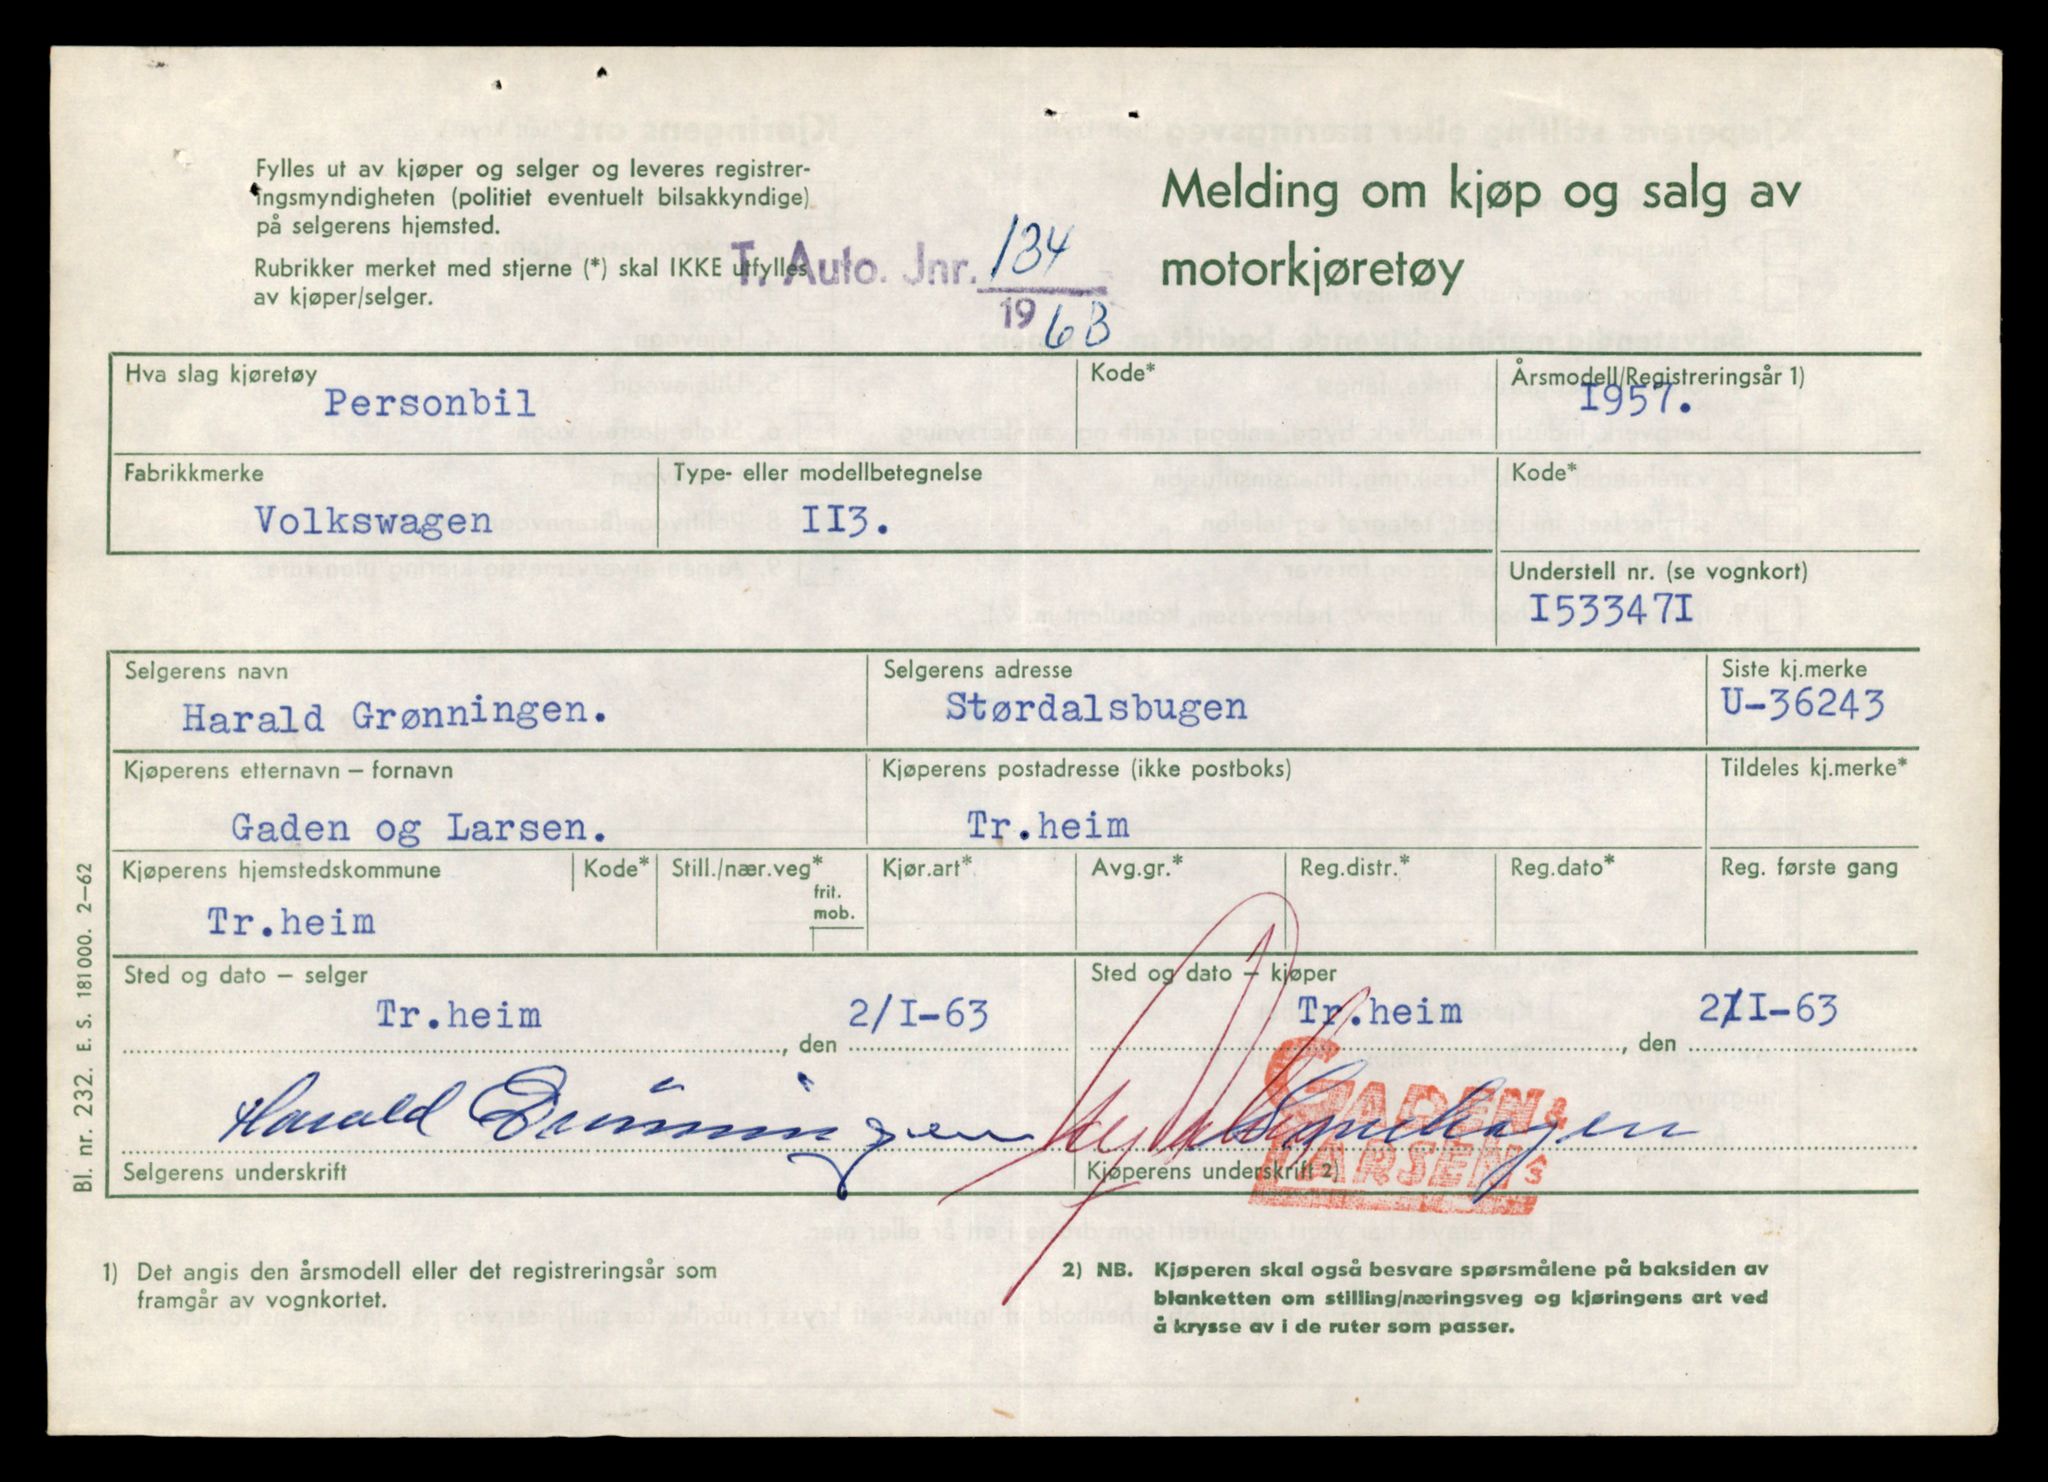 Fylles ut av kjøper og selger og leveres registrer-
ingsmyndigheten (politiet eventuelt bilsakkyndige)
på selgerens hjemsted.
Rubrikker merket med stjerne (*) skal IKKE utfylles
av kjøper/selger.
T. Auto. Jnr. 134
1963
Melding om kjøp og salg av
motorkjøretøy
Hva slag kjøretøy
Personbil
Kode*
Årsmodell/Registreringsår 1)
I957.
Fabrikkmerke
Volkswagen
Type- eller modellbetegnelse
II3.
Kode*
Understell nr. (se vognkort)
I53347I
Selgerens navn
Harald Grønningen.
Selgerens adresse
Størdalsbugen
Siste kj.merke
U-36243
Kjøperens etternavn – fornavn
Gaden og Larsen.
Kjøperens postadresse (ikke postboks)
Tr.heim
Tildeles kj.merke*
Kjøperens hjemstedskommune
Tr.heim
Kode*
Still./nær.veg*
frit.
mob.
Kjør.art*
Avg.gr.*
Reg.distr.*
Reg.dato*
Reg. første gang
Sted og dato – selger
Tr.heim , den 2/I-63
Sted og dato – kjøper
Tr.heim , den 2/I-63
Harald Grönningen
Selgerens underskrift
GADEN &
LARSEN A/S
Kjøperens underskrift 2)
1) Det angis den årsmodell eller det registreringsår som
framgår av vognkortet.
2) NB. Kjøperen skal også besvare spørsmålene på baksiden av
blanketten om stilling/næringsveg og kjøringens art ved
å krysse av i de ruter som passer.
Bl. nr. 232. E. S. 181000. 2–62